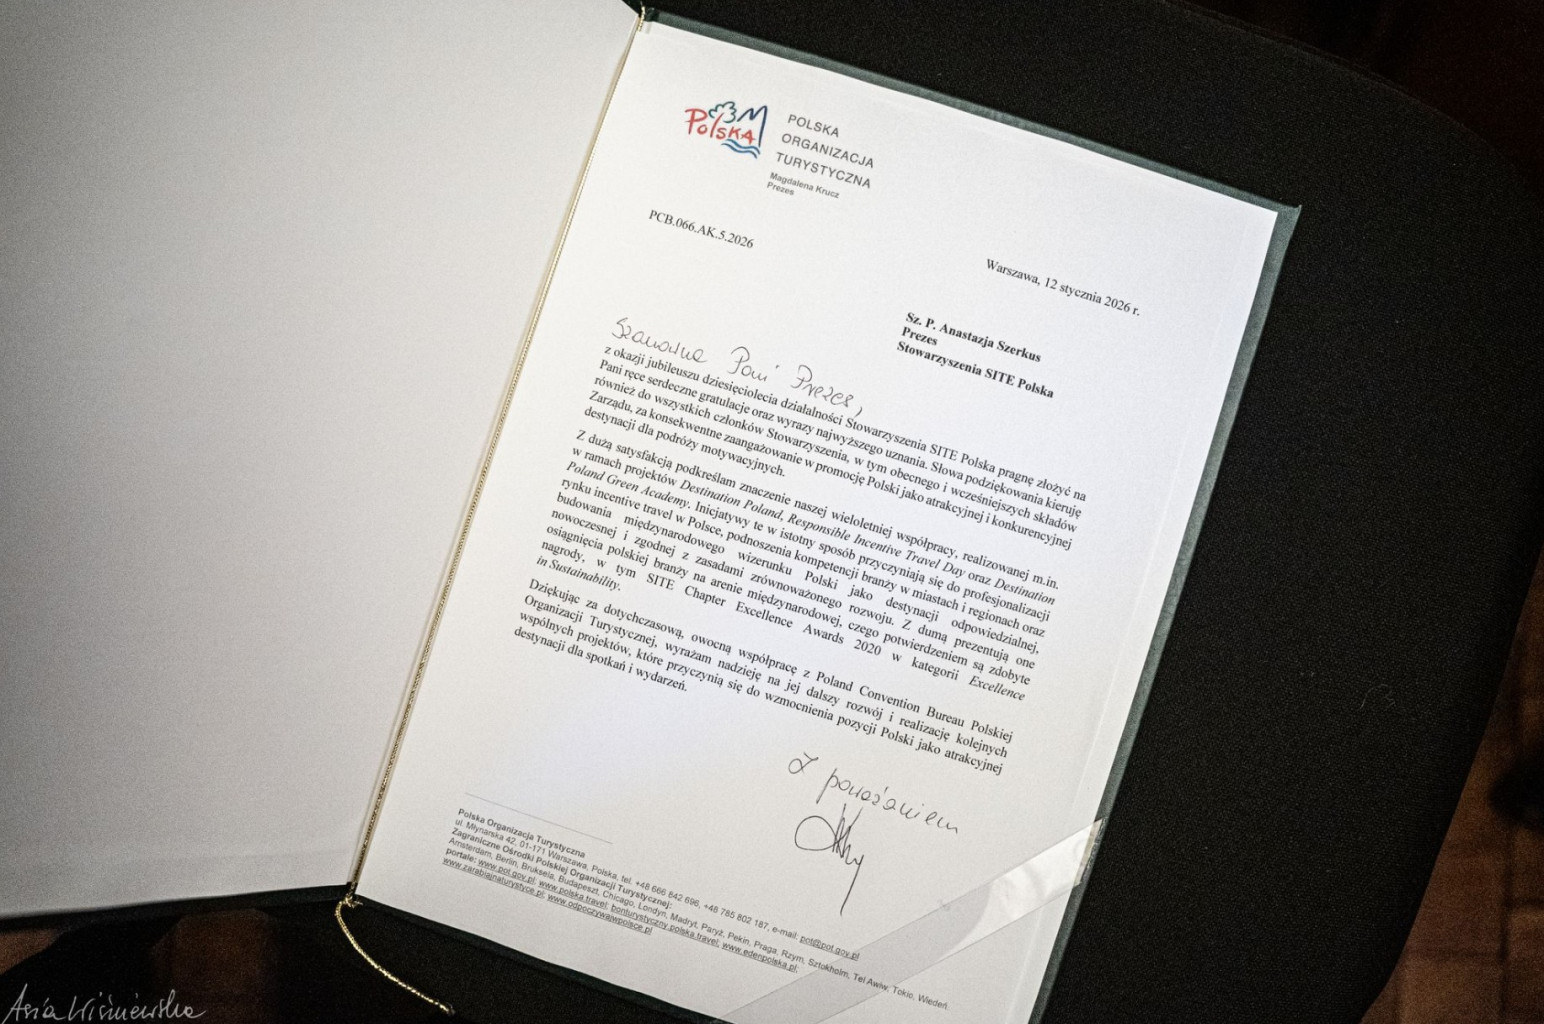 Polska
POLSKA
ORGANIZACJA
TURYSTYCZNA
Magdalena Krucz
Prezes
PCB.066.AK.5.2026
Warszawa, 12 stycznia 2026 r.
Sz. P. Anastazja Szerkus
Prezes
Stowarzyszenia SITE Polska
Szanowna Pani Prezes,
z okazji jubileuszu dziesięciolecia działalności Stowarzyszenia SITE Polska pragnę złożyć na
Pani ręce serdeczne gratulacje oraz wyrazy najwyższego uznania. Słowa podziękowania kieruję
również do wszystkich członków Stowarzyszenia, w tym obecnego i wcześniejszych składów
Zarządu, za konsekwentne zaangażowanie w promocję Polski jako atrakcyjnej i konkurencyjnej
destynacji dla podróży motywacyjnych.
Z dużą satysfakcją podkreślam znaczenie naszej wieloletniej współpracy, realizowanej m.in.
w ramach projektów Destination Poland, Responsible Incentive Travel Day oraz Destination
Poland Green Academy. Inicjatywy te w istotny sposób przyczyniają się do profesjonalizacji
rynku incentive travel w Polsce, podnoszenia kompetencji branży w miastach i regionach oraz
budowania międzynarodowego wizerunku Polski jako destynacji odpowiedzialnej,
nowoczesnej i zgodnej z zasadami zrównoważonego rozwoju. Z dumą prezentują one
osiągnięcia polskiej branży na arenie międzynarodowej, czego potwierdzeniem są zdobyte
nagrody, w tym SITE Chapter Excellence Awards 2020 w kategorii Excellence
in Sustainability.
Dziękując za dotychczasową, owocną współpracę z Poland Convention Bureau Polskiej
Organizacji Turystycznej, wyrażam nadzieję na jej dalszy rozwój i realizację kolejnych
wspólnych projektów, które przyczynią się do wzmocnienia pozycji Polski jako atrakcyjnej
destynacji dla spotkań i wydarzeń.
Z poważaniem
Polska Organizacja Turystyczna
ul. Młynarska 42, 01-171 Warszawa, Polska, tel. +48 666 842 696, +48 785 802 187, e-mail: pot@pot.gov.pl
Zagraniczne Ośrodki Polskiej Organizacji Turystycznej:
Amsterdam, Berlin, Bruksela, Budapeszt, Chicago, Londyn, Madryt, Paryż, Pekin, Praga, Rzym, Sztokholm, Tel Awiw, Tokio, Wiedeń.
portale: www.pot.gov.pl; www.polska.travel; bonturystyczny.polska.travel; www.edenpolska.pl;
www.zarabiajnaturystyce.pl; www.odpoczywajwpolsce.pl
Asia Wiśniewska